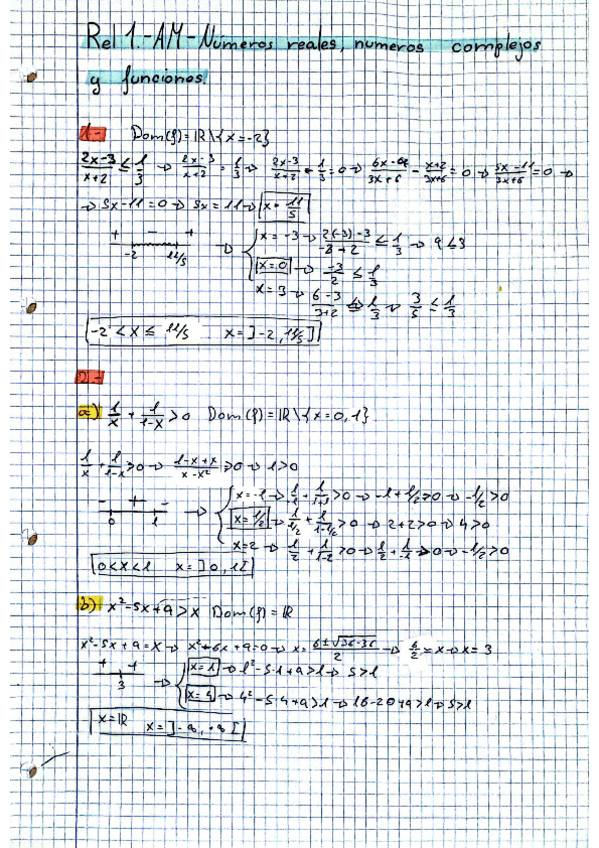 Rel 1.-AM-Números reales, numeros complejos
y funciones.
1-
Dom(f)=ℝ\{x=-2}
2x-3/x+2 ≤ 1/3 → 2x-3/x+2 = 1/3 → 2x-3/x+2 - 1/3 = 0 → 6x-9/3x+6 - x+2/3x+6 = 0 → 5x-11/3x+6 = 0 →
→ 5x-11=0 → 5x=11 → x=11/5
+ - +
-2 11/5
→ { x=-3 → 2(-3)-3/-3+2 ≤ 1/3 → 9≤3
x=0 → -3/2 ≤ 1/3
x=3 → 6-3/3+2 ≤ 1/3 → 3/5 ≤ 1/3
-2<x≤ 11/5 x=]-2, 11/5]
2-
a) 1/x + 1/1-x >0 Dom(f)=ℝ\{x=0,1}
1/x + 1/1-x >0 → 1-x+x/x-x² >0 → 1>0
- + -
0 1
→ { x=-1 → 1/-1 + 1/1+1 >0 → -1+1/2>0 → -1/2>0
x=1/2 → 1/1/2 + 1/1-1/2 >0 → 2+2>0 → 4>0
x=2 → 1/2 + 1/1-2 >0 → 1/2 + 1/-1 >0 → -1/2>0
0<x<1 x=]0,1[
b) x²-5x+9>x Dom(f)=ℝ
x²-5x+9=x → x²-6x+9=0 → x= 6±√36-36/2 → 6/2=x → x=3
+ +
3
→ { x=1 → 1²-5·1+9>1 → 5>1
x=4 → 4²-5·4+9>1 → 16-20+9>1 → 5>1
x=ℝ x=]-∞,+∞[